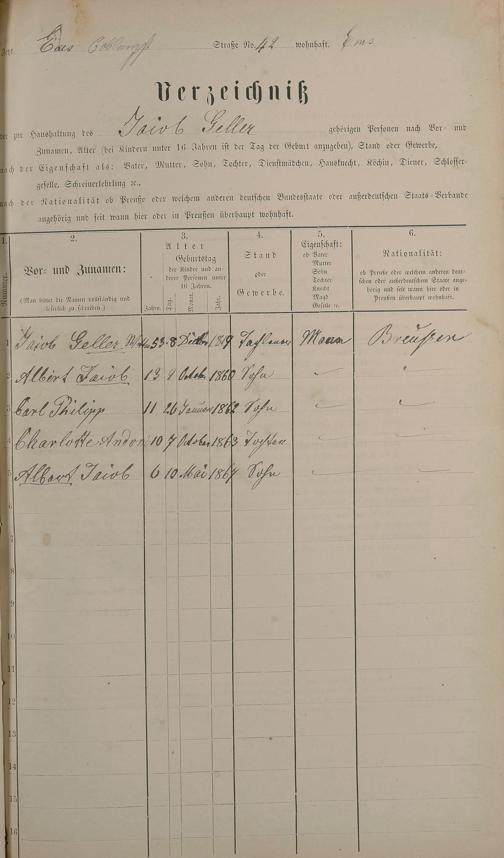 Ems Straße No. 42 wohnhaft. Ems
Verzeichniß
der zur Haushaltung des Jaiob Geller gehörigen Personen nach Vor- und
Zunamen, Alter (bei Kindern unter 16 Jahren ist der Tag der Geburt anzugeben), Stand oder Gewerbe,
nach der Eigenschaft als: Vater, Mutter, Sohn, Tochter, Dienstmädchen, Hausknecht, Köchin, Diener, Schlosser-
geselle, Schreinerlehrling ꝛc.,
nach der Nationalität ob Preuße oder welchem anderen deutschen Bundesstaate oder außerdeutschen Staats-Verbande
angehörig und seit wann hier oder in Preußen überhaupt wohnhaft.
1. 2. 3. 4. 5. 6.
Nummer.
Vor- und Zunamen:
(Man bittet die Namen vollständig und
leserlich zu schreiben.)
Alter
Geburtstag
der Kinder und an-
derer Personen unter
16 Jahren.
Jahre. Tag. Monat. Jahr.
Stand
oder
Gewerbe.
Eigenschaft:
ob Vater
Mutter
Sohn
Tochter
Knecht
Magd
Geselle ꝛc.
Nationalität:
ob Preuße oder welchem anderen deut-
schen oder außerdeutschen Staate ange-
hörig und seit wann hier oder in
Preußen überhaupt wohnhaft.
1 Jaiob Geller 53 8 Mann Breußen
2 Albert Jaiob 13 9 October 1860 Sohn
3 Carl Philipp 11 26 Januar 1862 Sohn
4 Charlotte 10 7 October 1863 Tochter
5 Albert Jaiob 6 10 Mai 1867 Sohn
6
7
8
9
10
11
12
13
14
15
16